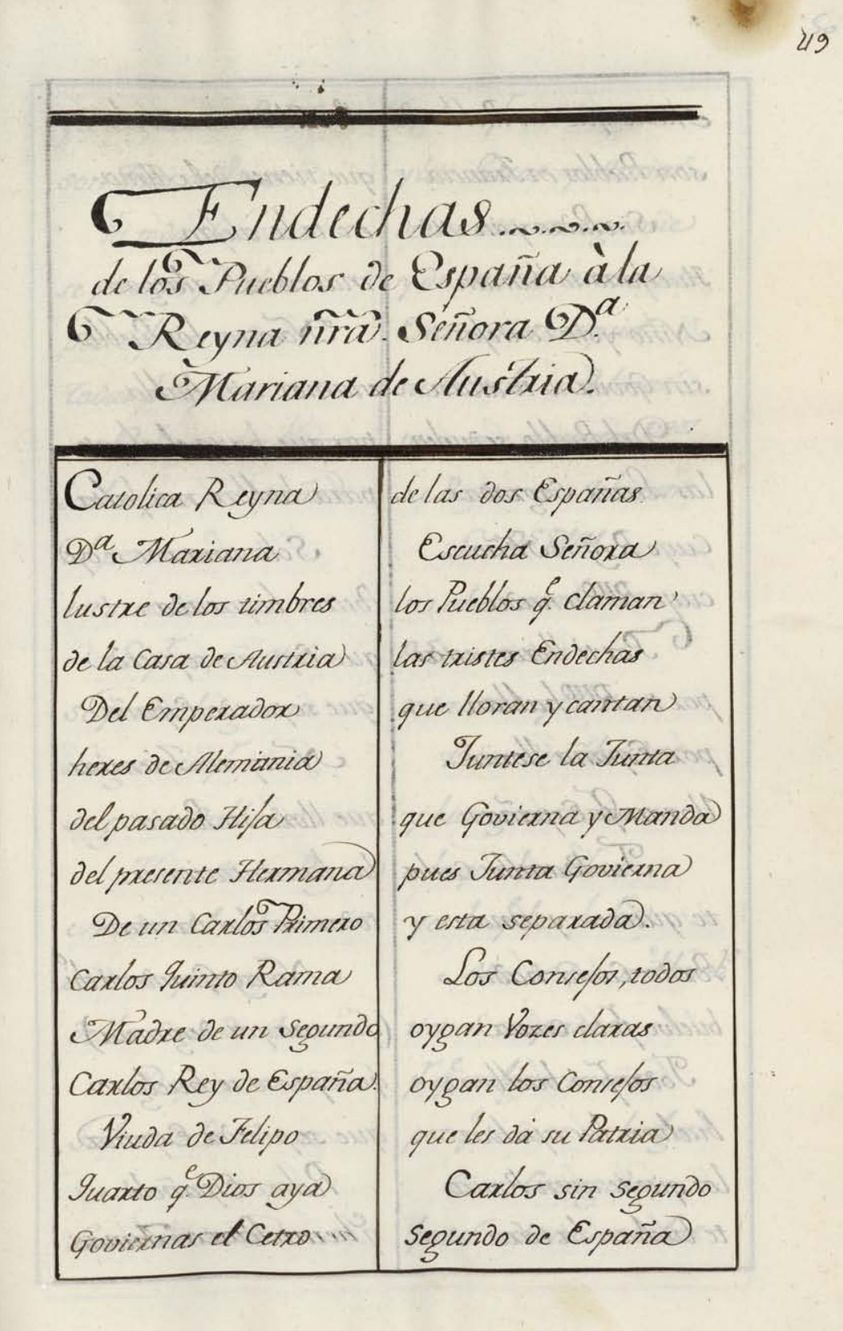 49
Endechas
de los Pueblos de España à la
Reyna ñrã. Señora D.ª
Mariana de Austria.
Catolica Reyna
Dª Mariana
lustre de los timbres
de la Casa de Austria
Del Emperador
heres de Alemania
del pasado Hija
del presente Hermana
De un Carlos Primero
Carlos Quinto Rama
Madre de un Segundo
Carlos Rey de España.
Viuda de Felipo
Quarto q.e Dios aya
Goviernas el Cetro
de las dos Españas.
Escucha Señora
los Pueblos q.e claman
las tristes Endechas
que lloran y cantan
Juntese la Junta
que Govierna y Manda
pues Junta Govierna
y esta separada.
Los Consejos, todos
oygan Vozes claras
oygan los Consejos
que les dà su Patria
Carlos sin Segundo
Segundo de España